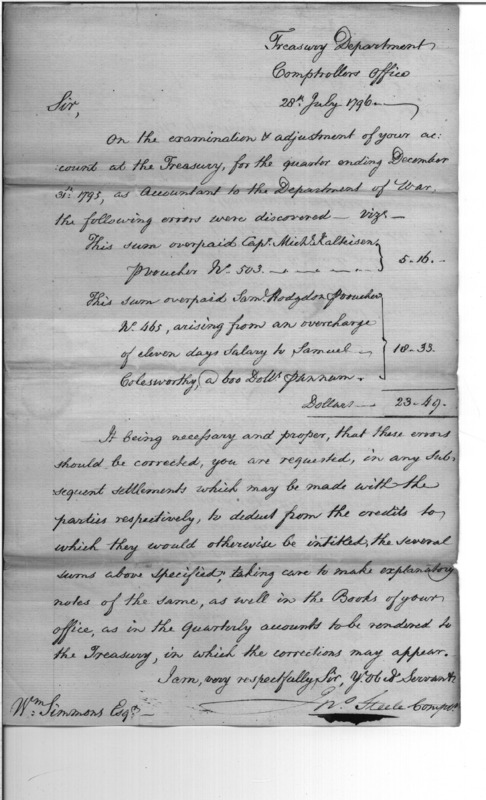 Treasury Department
Comptrollers Office
28th July 1796
Sir,
On the examination & adjustment of your ac:
:count at the Treasury, for the quarter ending December
31st 1795, as Accountant to the Department of War,
the following errors were discovered — Vizt —
This sum overpaid Capt. Michl. Kalteisen
p voucher No. 503 — — — — } 5.16. —
This sum overpaid Saml. Hodgdon p voucher
No. 465, arising from an overcharge
of eleven days Salary to Samuel } 18-33
Colesworthy, @ 600 Dolls. p annum.
Dollars — 23-49.
It being necessary and proper, that these errors
should be corrected, you are requested, in any sub-
sequent settlements which may be made with the
parties respectively, to deduct from the credits to
which they would otherwise be intitled, the several
sums above specified, taking care to make explanatory
notes of the same, as well in the Books of your
office, as in the Quarterly accounts to be rendered to
the Treasury, in which the corrections may appear.
I am, very respectfully, Sir, Yr. Ob dt. Servant.
Wm. Simmons Esqr. —
Jno. Steele Compr.